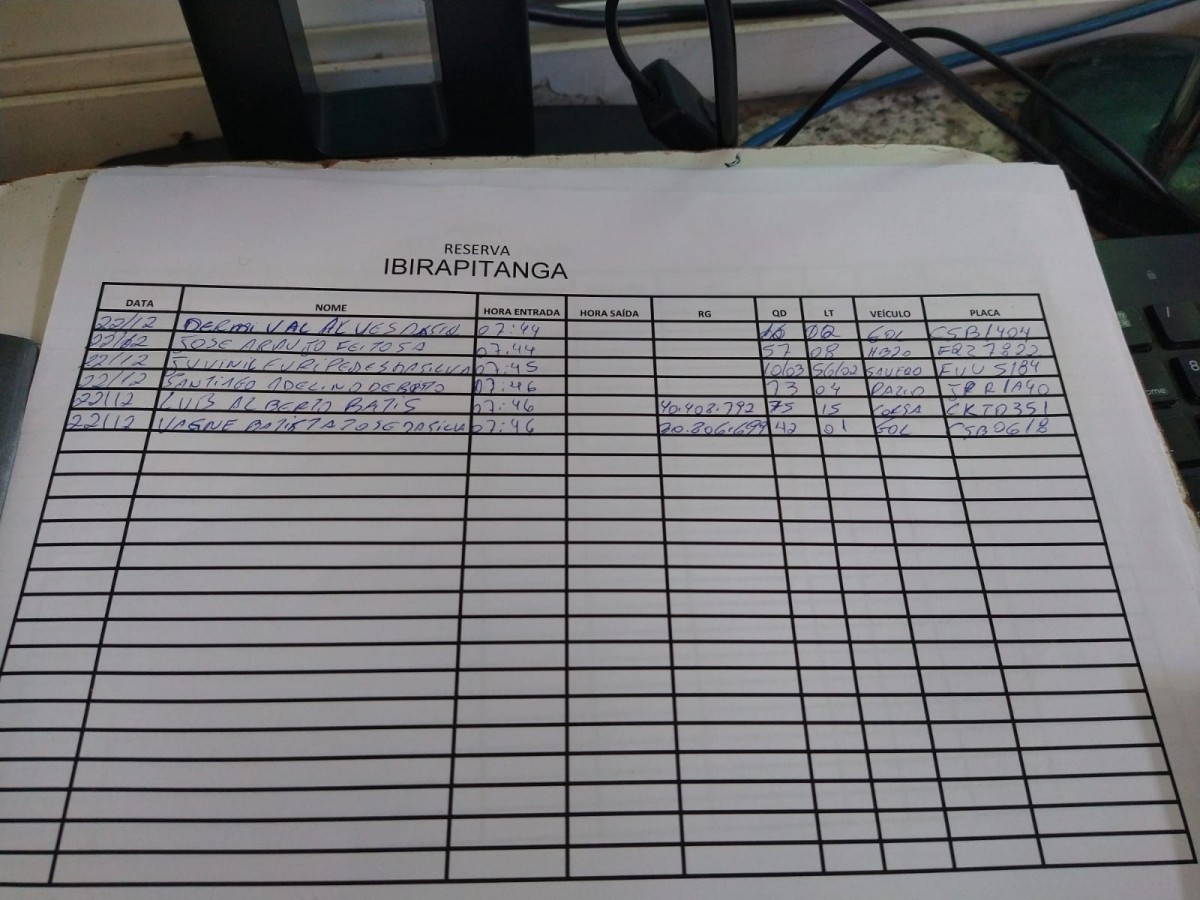 RESERVA
IBIRAPITANGA
DATA NOME HORA ENTRADA HORA SAÍDA RG QD LT VEÍCULO PLACA
22/12 DERMIVAL ALVES DASILVA 07:44 02 GOL CSB1404
22/12 JOSE ARAUJO FEITOSA 07:44 57 08 HB20 7822
22/12 JUVINIL EURIPEDES DASILVA 07:45 10/03 56/02 SAVERO 5184
22/12 SANTIAGO ADELINO DE 07:46 73 04 1A40
22/12 LUÍS ALBERTO BATIS 07:46 40.408.792 75 15 CORSA CKT0351
22/12 VAGNE BATISTA JOSE DASILVA 07:46 20.806.699 42 01 GOL CSB0618